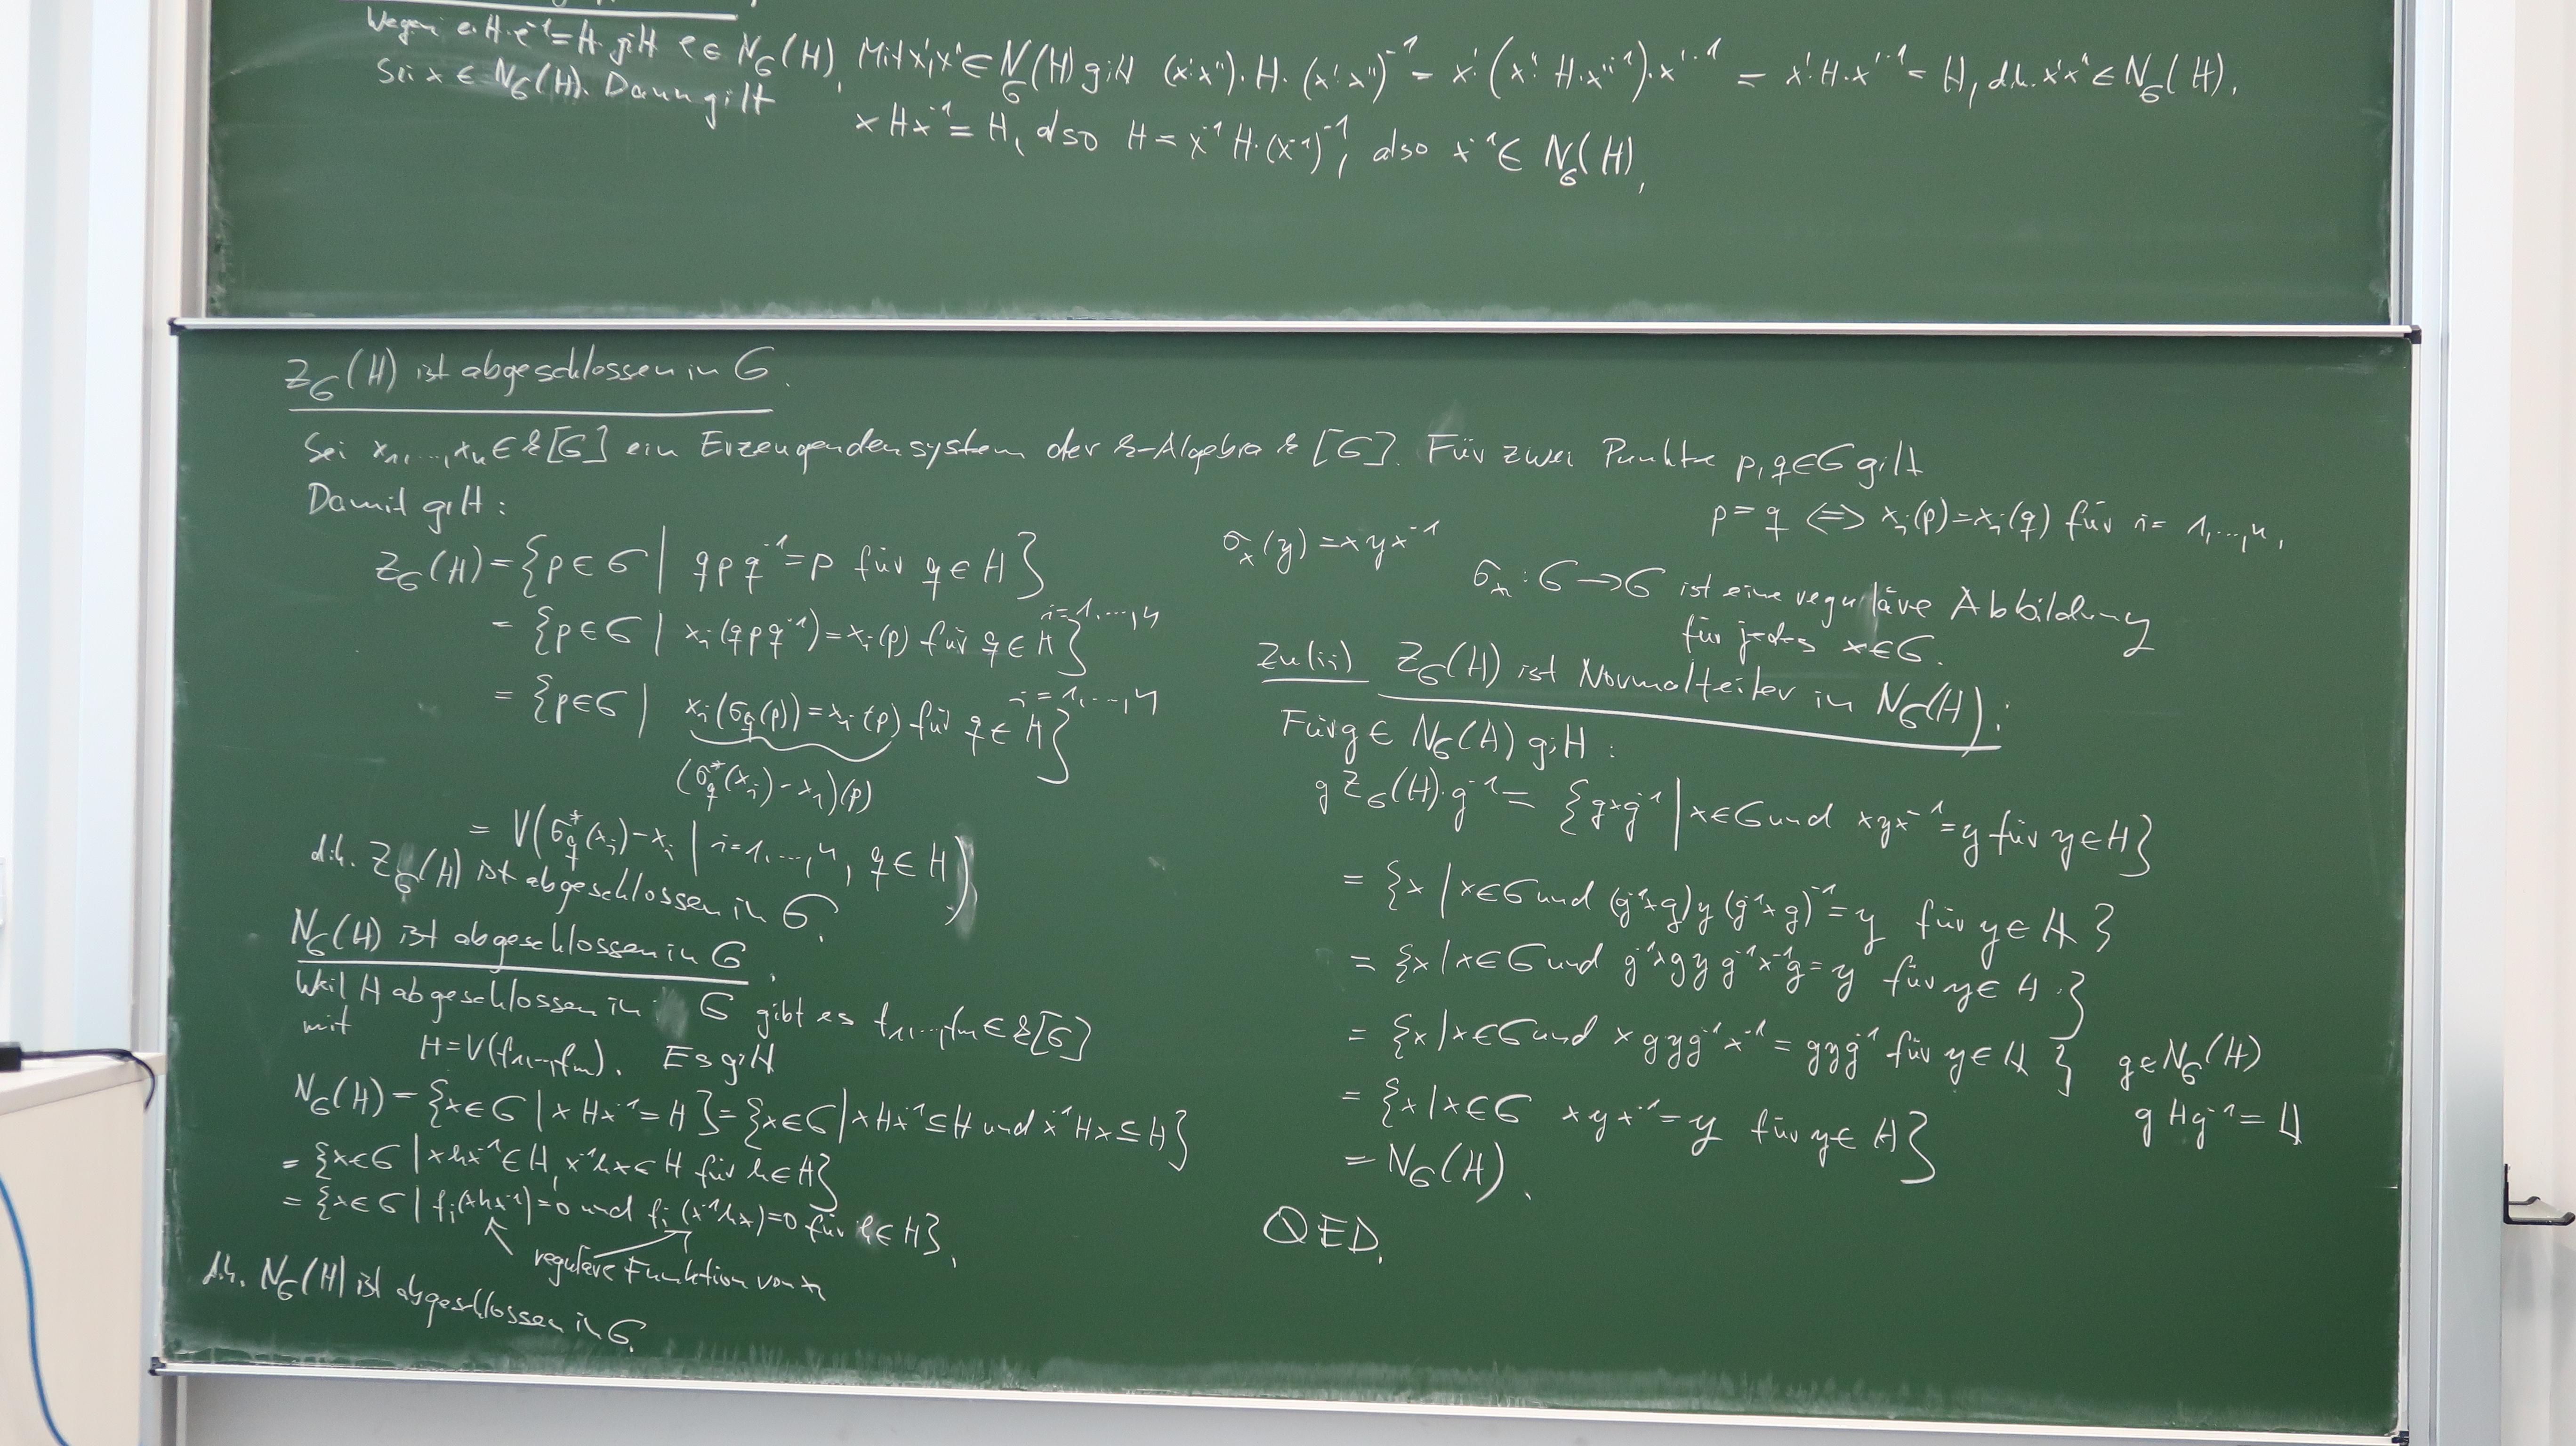 Wegen e.H.e⁻¹=H gilt e ∈ N_G(H). Mit x',x'' ∈ N_G(H) gilt (x'x'')·H·(x'x'')⁻¹ = x'(x''H·x''⁻¹)·x'⁻¹ = x'·H·x'⁻¹ = H, d.h. x'x'' ∈ N_G(H).
Sei x ∈ N_G(H). Dann gilt
xHx⁻¹ = H, also H = x⁻¹H·(x⁻¹)⁻¹, also x⁻¹ ∈ N_G(H).
Z_G(H) ist abgeschlossen in G.
Sei x₁,...,xₙ ∈ k[G] ein Erzeugendensystem der k-Algebra k[G]. Für zwei Punkte p,q∈G gilt
p=q ⇔ xᵢ(p)=xᵢ(q) für i=1,...,n.
Damit gilt:
Z_G(H) = {p∈G | qpq⁻¹=p für q∈H}
= {p∈G | xᵢ(qpq⁻¹)=xᵢ(p) für q∈H} i=1,...,n
= {p∈G | xᵢ(σ_q(p))=xᵢ(p) für q∈H} i=1,...,n
(σ_q*(xᵢ)-xᵢ)(p)
= V(σ_q*(xᵢ)-xᵢ | i=1,...,n, q∈H)
d.h. Z_G(H) ist abgeschlossen in G.
N_G(H) ist abgeschlossen in G.
Weil H abgeschlossen in G gibt es f₁,...,fₘ∈k[G]
mit
H=V(f₁,...,fₘ). Es gilt
N_G(H) = {x∈G | xHx⁻¹=H} = {x∈G | xHx⁻¹⊆H und x⁻¹Hx⊆H}
= {x∈G | xhx⁻¹∈H, x⁻¹hx∈H für h∈H}
= {x∈G | fᵢ(xhx⁻¹)=0 und fᵢ(x⁻¹hx)=0 für h∈H}.
reguläre Funktion von x
d.h. N_G(H) ist abgeschlossen in G.
σ_x(y)=xyx⁻¹
σ_x: G→G ist eine reguläre Abbildung
für jedes x∈G.
Zu (ii) Z_G(H) ist Normalteiler in N_G(H):
Für g∈N_G(H) gilt:
gZ_G(H)·g⁻¹ = {gxg⁻¹ | x∈G und xyx⁻¹=y für y∈H}
= {x | x∈G und (g⁻¹xg)y(g⁻¹xg)⁻¹=y für y∈H}
= {x | x∈G und g⁻¹xgyg⁻¹x⁻¹g=y für y∈H}
= {x | x∈G und xgyg⁻¹x⁻¹=gyg⁻¹ für y∈H} g∈N_G(H)
= {x | x∈G xyx⁻¹=y für y∈H} gHg⁻¹=H
= N_G(H).
QED.